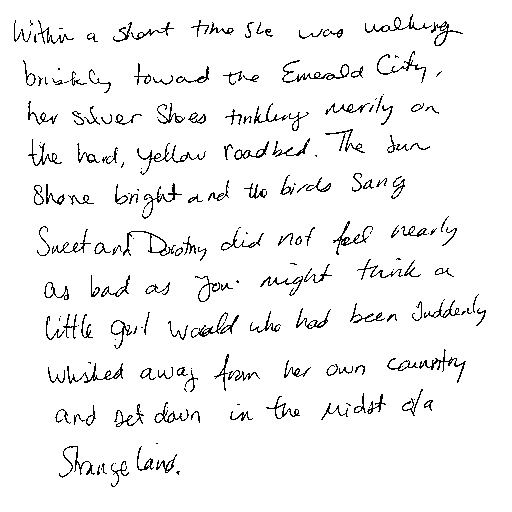 Within a short time she was walking
briskly toward the Emerald City,
her silver shoes tinkling merily on
the hard, yellow roadbed. The sun
shone bright and the birds sang
sweet and Dorothy did not feel nearly
as bad as you might think a
little girl would who had been suddenly
whisked away from her own country
and set down in the midst of a
strange land.